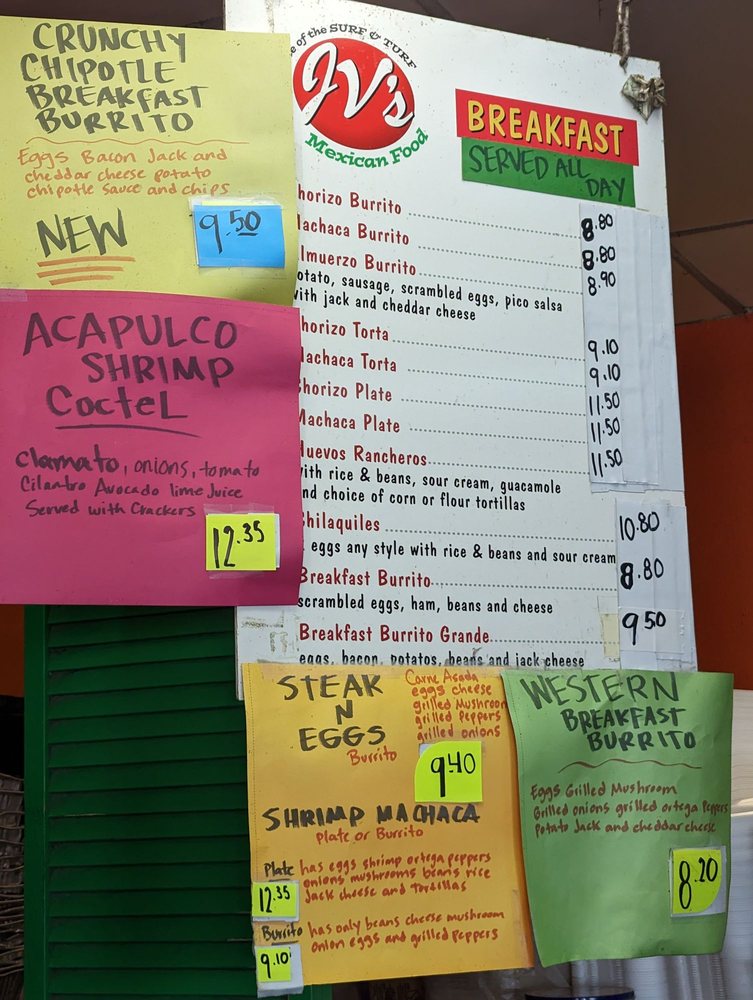 CRUNCHY
CHIPOTLE
BREAKFAST
BURRITO
Eggs Bacon Jack and
cheddar cheese potato
chipotle sauce and chips
NEW
9.50
ACAPULCO
SHRIMP
Coctel
clamato, onions, tomato
Cilantro Avocado lime Juice
Served with Crackers
12.35
of the SURF & TURF
JV's
Mexican Food
BREAKFAST
SERVED ALL
DAY
horizo Burrito 8.80
achaca Burrito 8.80
lmuerzo Burrito 8.90
otato, sausage, scrambled eggs, pico salsa
with jack and cheddar cheese
horizo Torta 9.10
achaca Torta 9.10
horizo Plate 11.50
Machaca Plate 11.50
uevos Rancheros 11.50
with rice & beans, sour cream, guacamole
nd choice of corn or flour tortillas
hilaquiles 10.80
eggs any style with rice & beans and sour cream
Breakfast Burrito 8.80
scrambled eggs, ham, beans and cheese
Breakfast Burrito Grande 9.50
eggs, bacon, potatoes, beans and jack cheese
STEAK
N
EGGS
Burrito
Carne Asada
eggs cheese
grilled Mushroom
grilled Peppers
grilled onions
9.40
SHRIMP MACHACA
Plate or Burrito
Plate has eggs shrimp ortega peppers
onions mushrooms beans rice
Jack cheese and tortillas
12.35
Burrito has only beans cheese mushroom
onion eggs and grilled Peppers
9.10
WESTERN
BREAKFAST
BURRITO
Eggs Grilled Mushroom
Grilled onions grilled ortega Peppers
Potato Jack and cheddar cheese
8.20